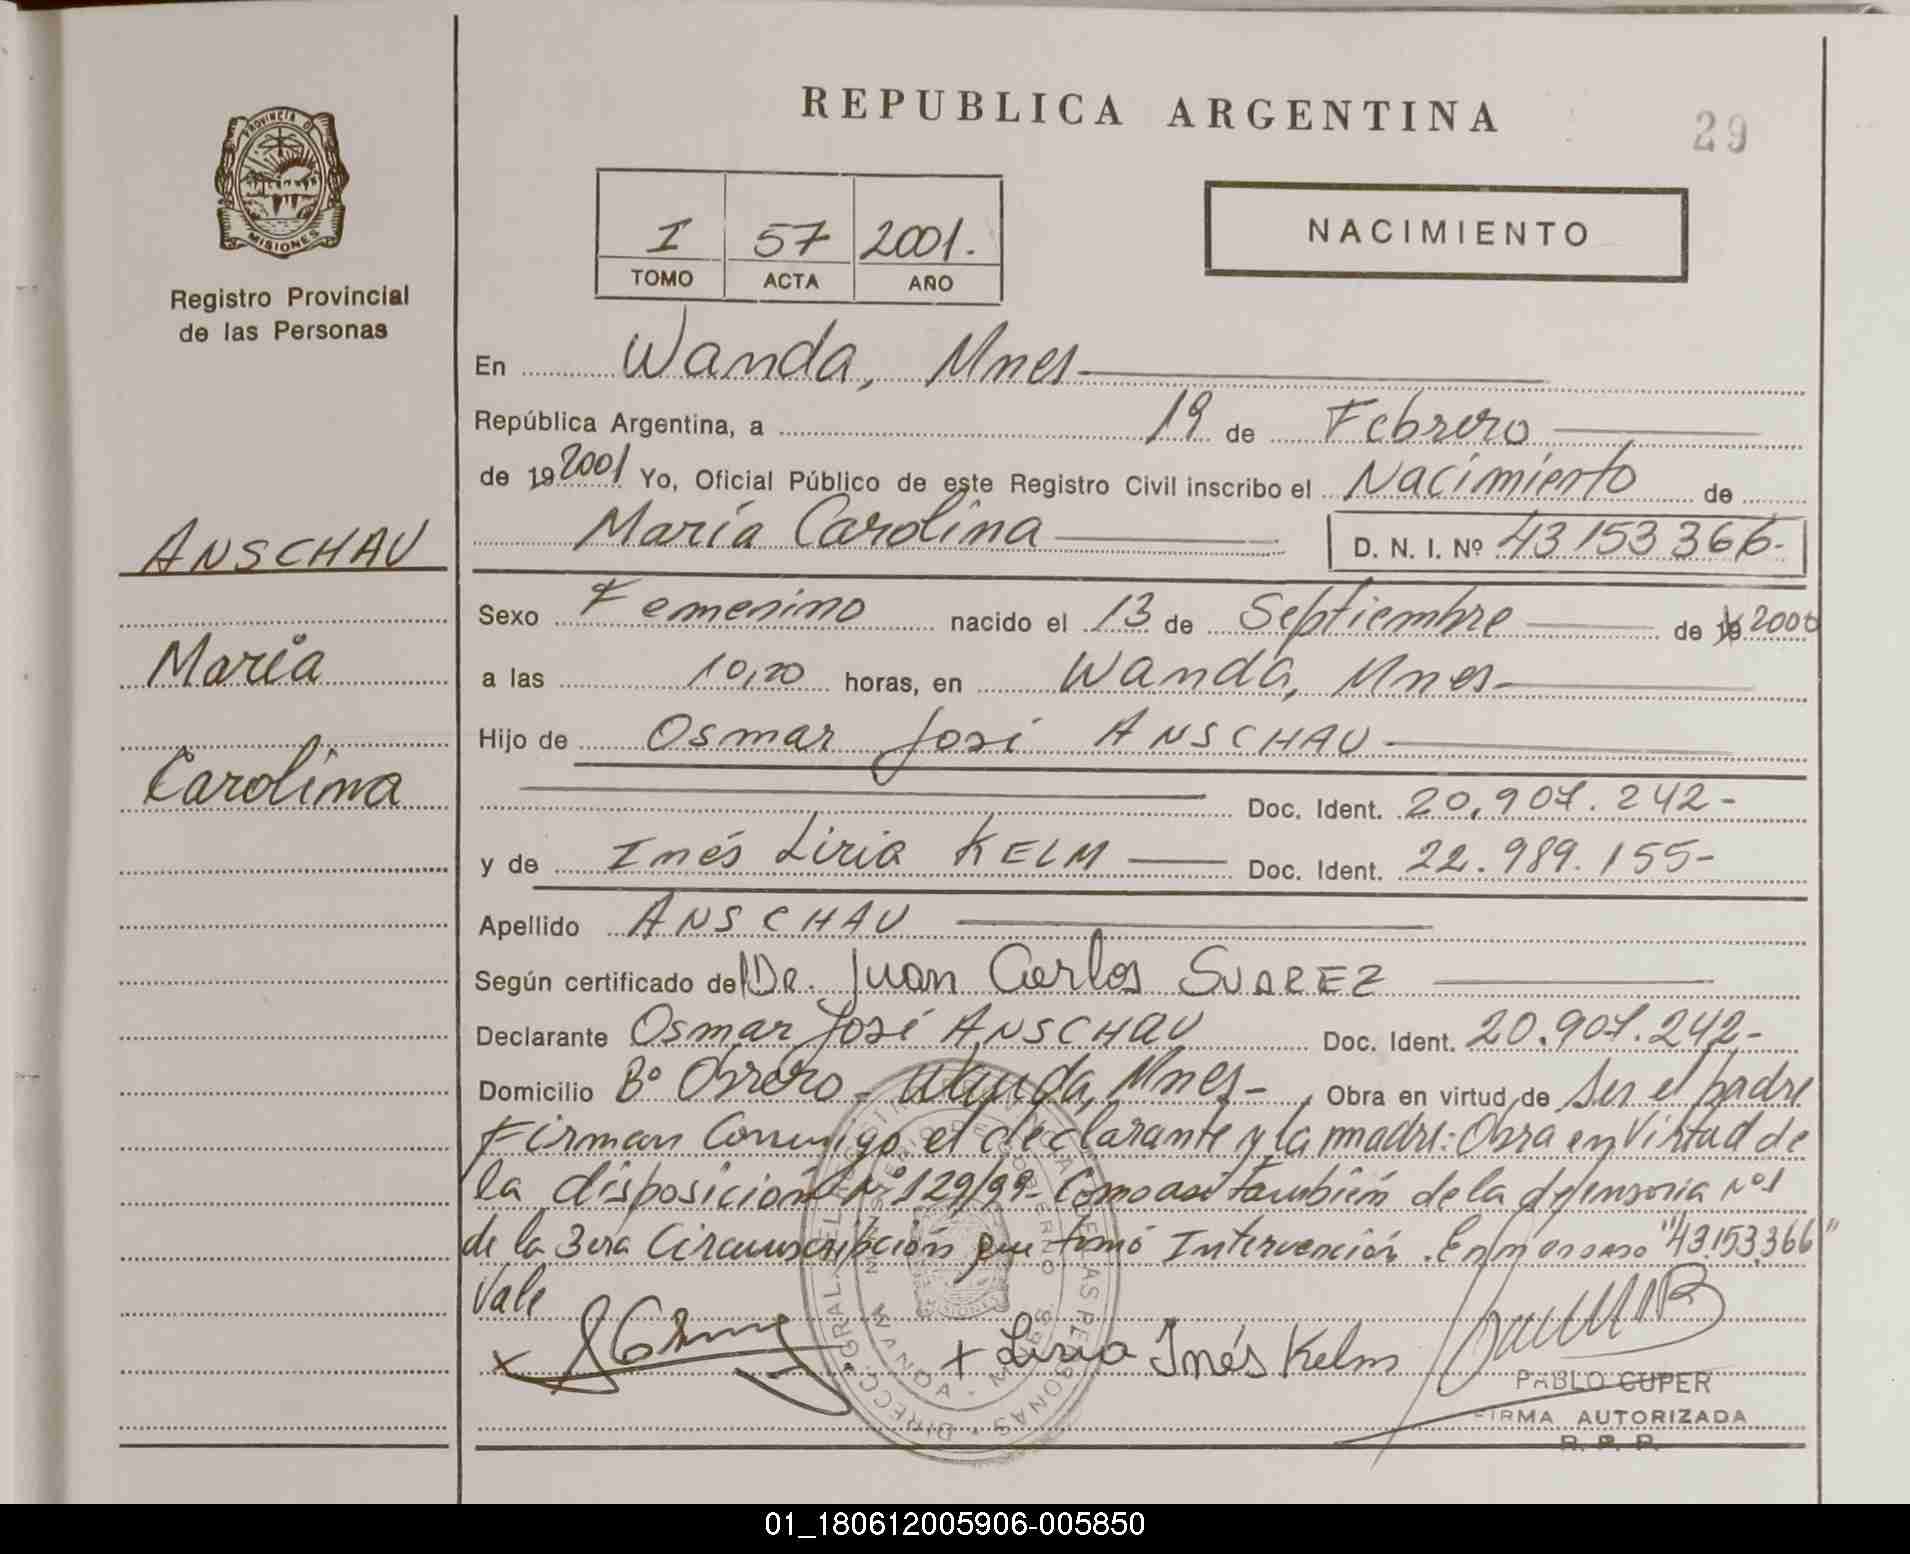 REPUBLICA ARGENTINA
29
PROVINCIA DE
MISIONES
Registro Provincial
de las Personas
I 57 2001.
TOMO ACTA AÑO
NACIMIENTO
En Wanda, Mnes
República Argentina, a 19 de Febrero
de 19 2001 Yo, Oficial Público de este Registro Civil inscribo el Nacimiento de
María Carolina D. N. I. Nº 43153366-
ANSCHAU
María
Carolina
Sexo Femenino nacido el 13 de Septiembre de 19 2000
a las 10,20 horas, en Wanda, Mnes-
Hijo de Osmar José ANSCHAU
Doc. Ident. 20.907.242-
y de Inés Liria KELM Doc. Ident. 22.989.155-
Apellido ANSCHAU
Según certificado del Dr. Juan Carlos SUAREZ
Declarante Osmar José ANSCHAU Doc. Ident. 20.907.242-
Domicilio Bº Obrero - Wanda, Mnes- Obra en virtud de Ser el padre
Firman Conmigo el declarante y la madre: Obra en Virtud de
la disposición Nº 129/99- Como asi también de la defensoria Nº1
de la 3era Circunscripción que tomó Intervención. "43.153.366"
Vale
x
+ Liria Inés Kelm
PABLO CUPER
FIRMA AUTORIZADA
R. P. P.
01_180612005906-005850